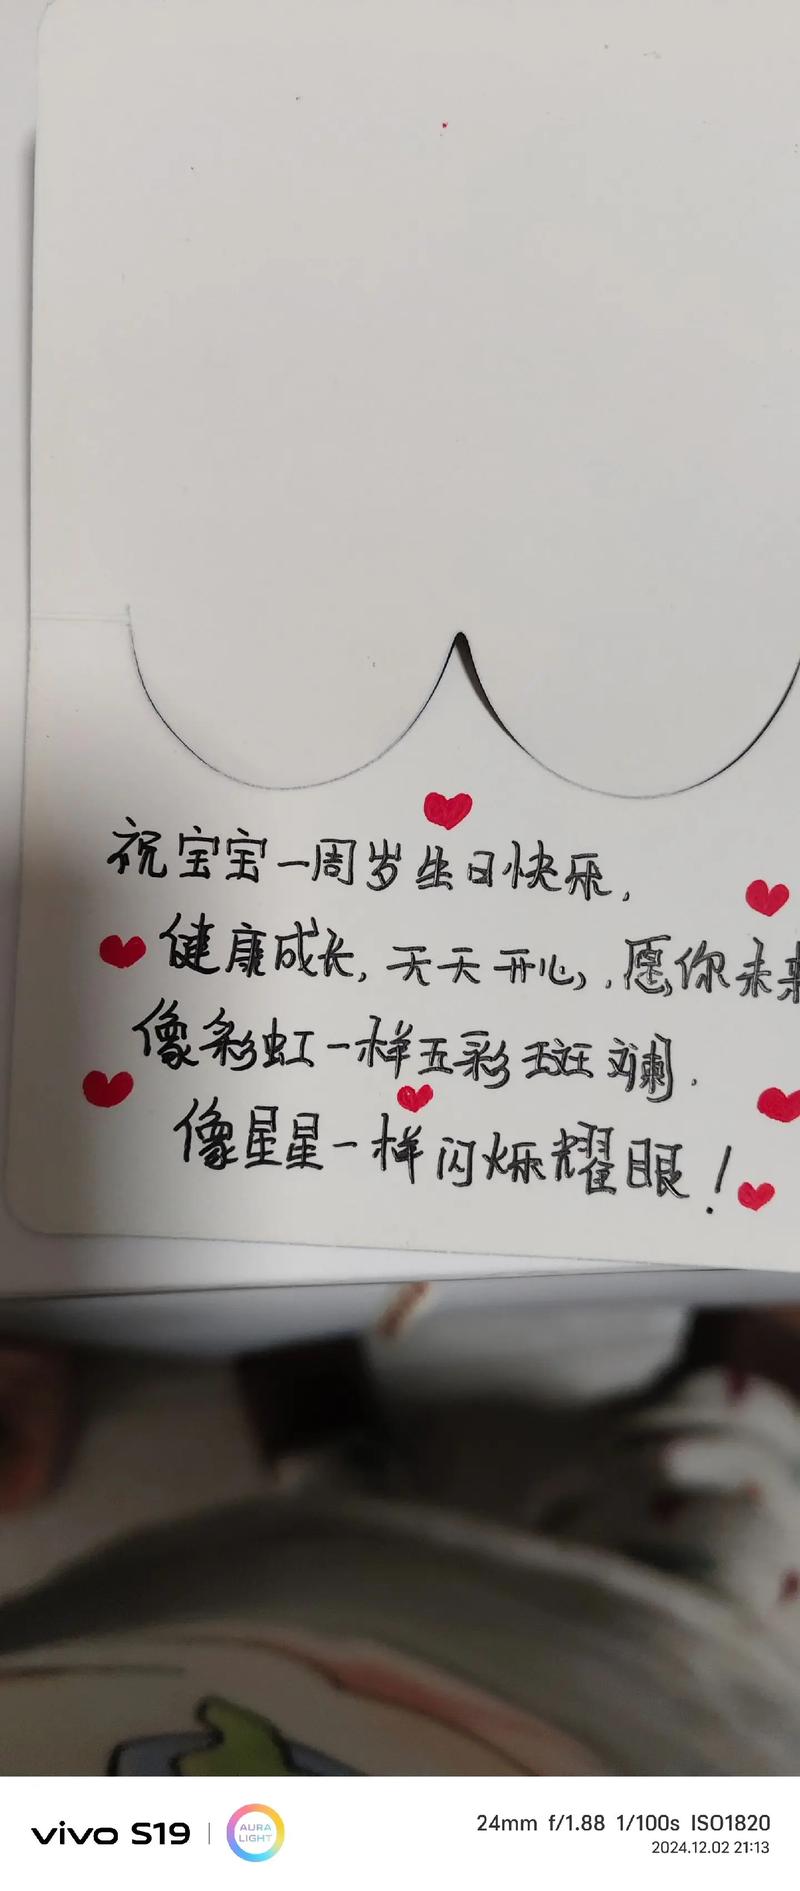 祝宝宝一周岁生日快乐,
健康成长,天天开心,愿你未来
像彩虹一样五彩斑斓.
像星星一样闪烁耀眼!
vivo S19
AURA
LIGHT
24mm f/1.88 1/100s ISO1820
2024.12.02 21:13